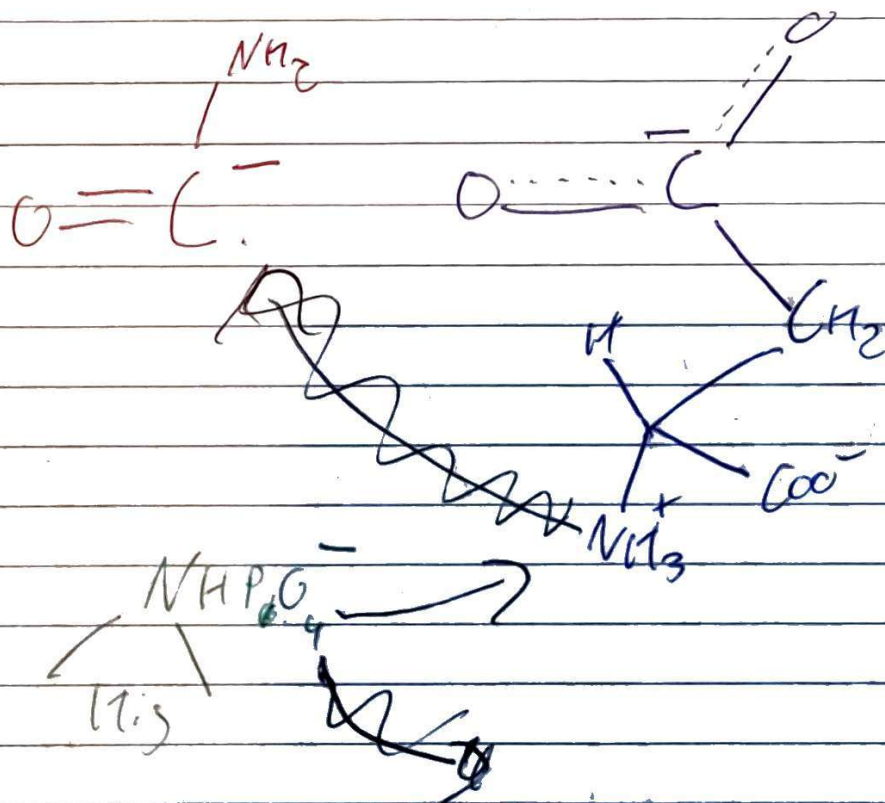 NH2
O
O = C −
O C −
CH2
H
COO−
NH3+
NHPO4 −
His